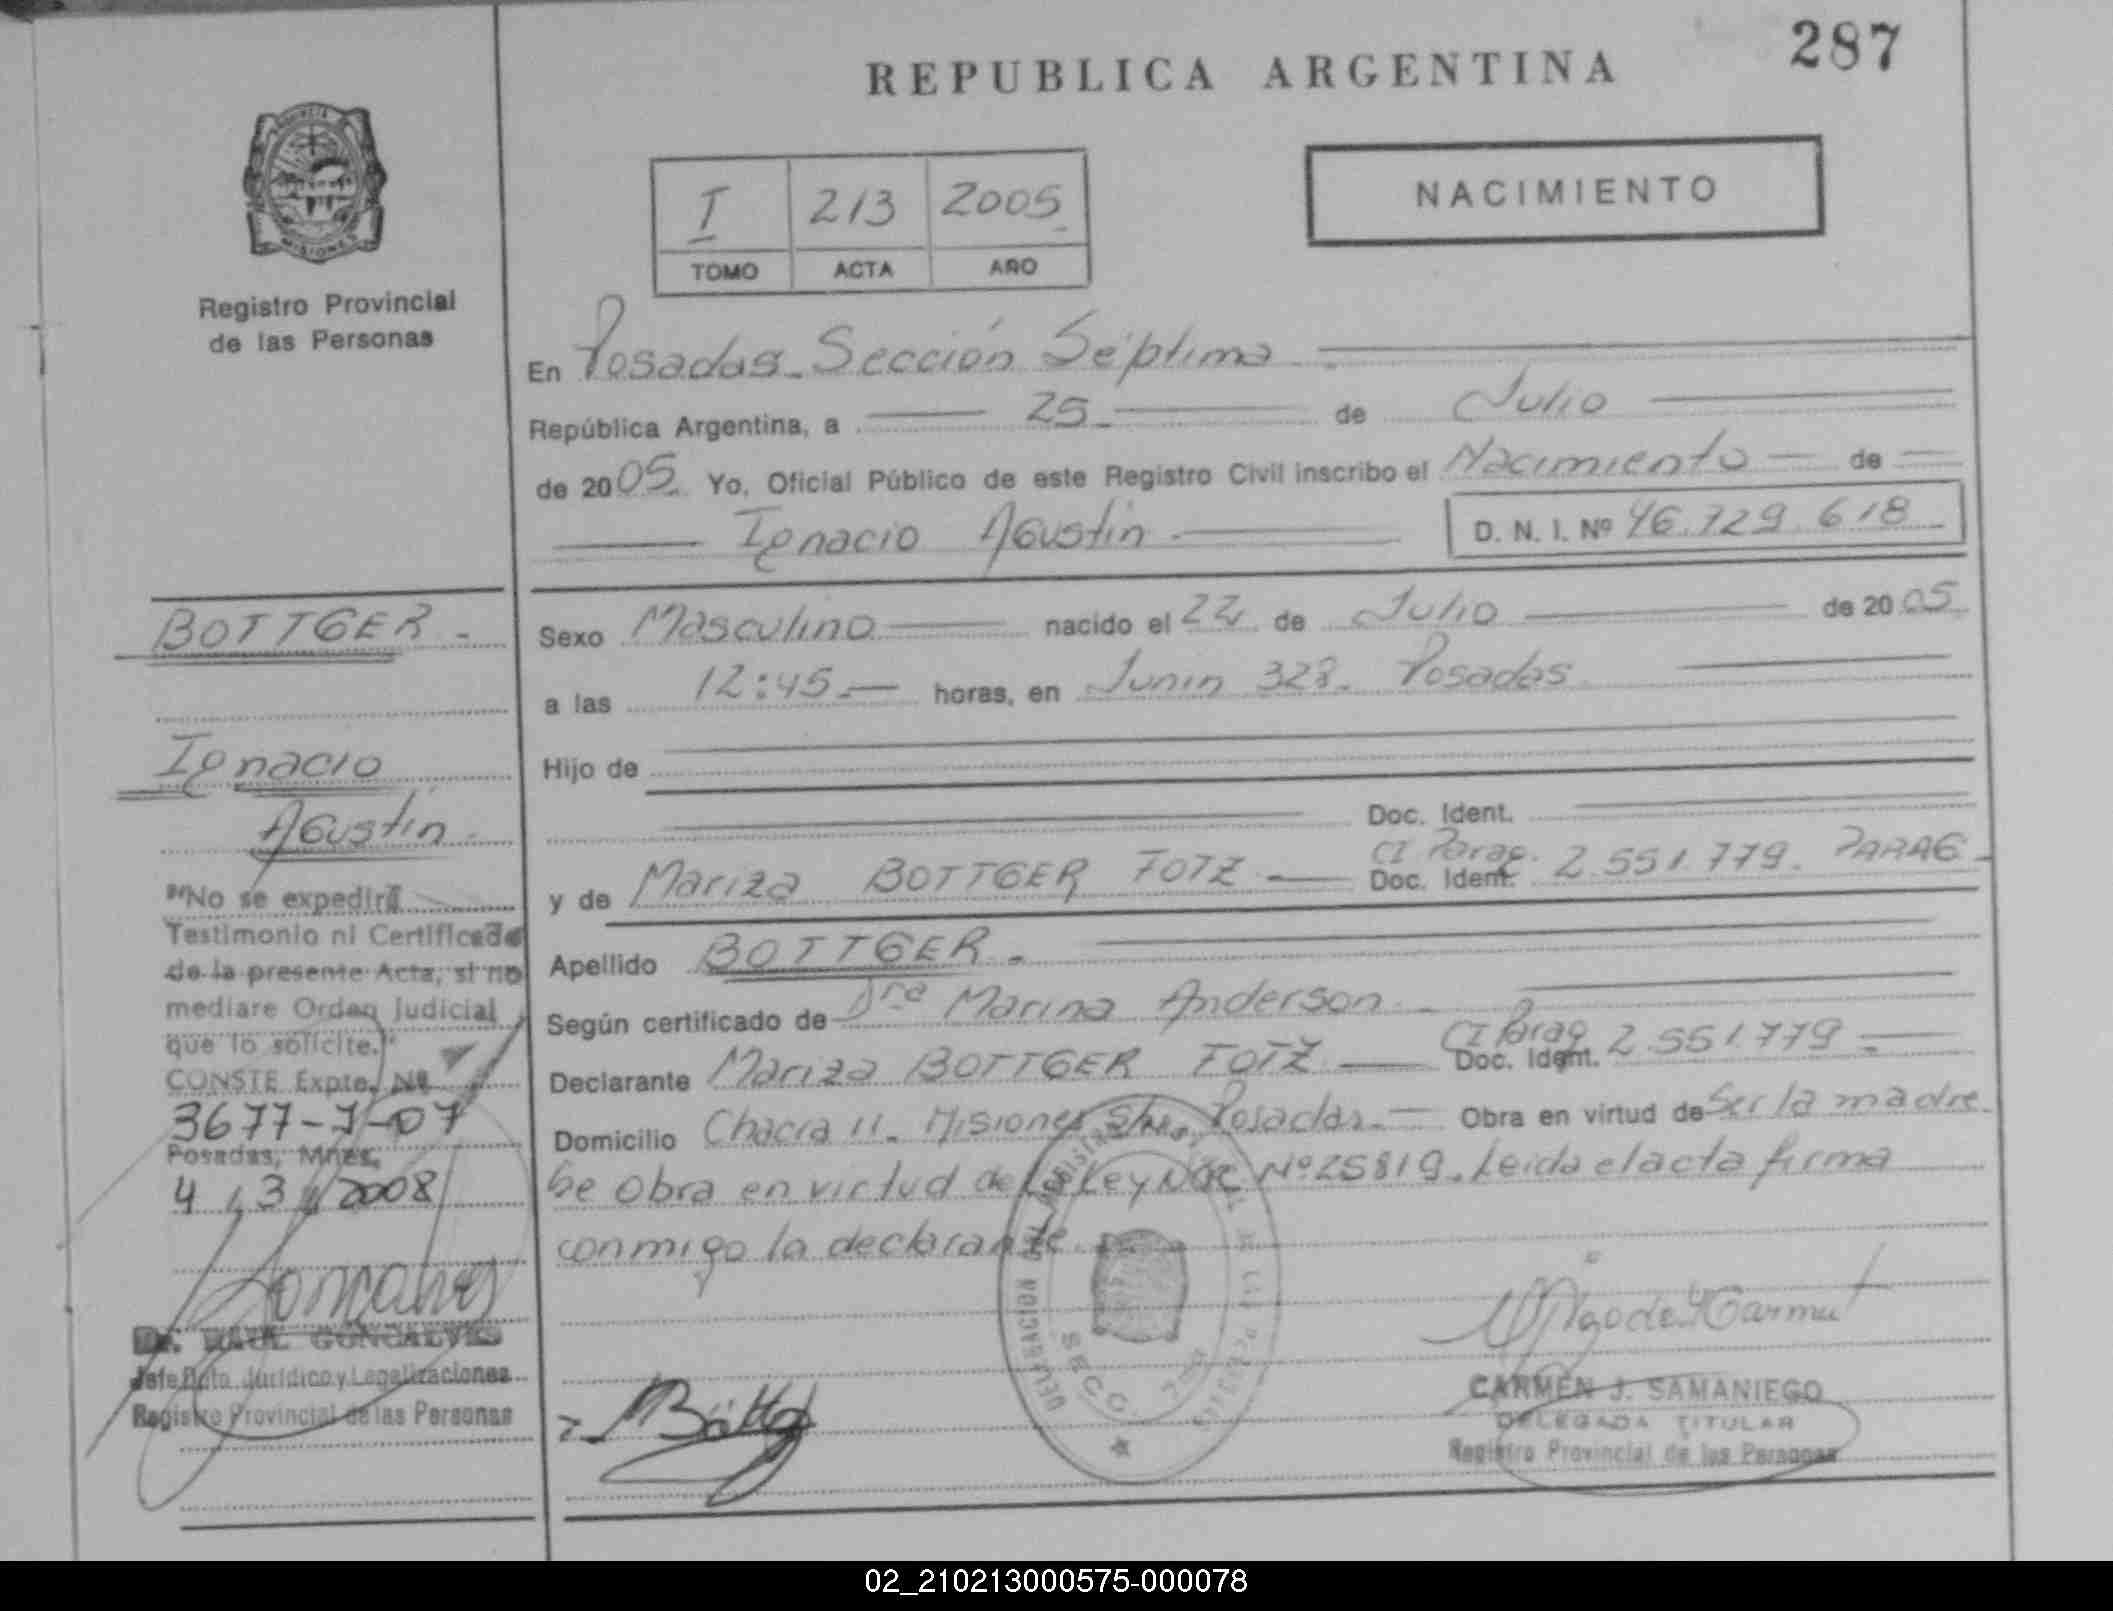 287
REPUBLICA ARGENTINA
NACIMIENTO
I 213 2005
TOMO ACTA AÑO
MISIONES
Registro Provincial
de las Personas
En Posadas. Sección Séptima
República Argentina, a 25 de Julio
de 2005. Yo, Oficial Público de este Registro Civil inscribo el Nacimiento de
Ignacio Agustín D. N. I. Nº 46.729.618
Sexo Masculino nacido el 22 de Julio de 2005
a las 12:45. horas, en Junin 328. Posadas
Hijo de
Doc. Ident.
CI Parag.
y de Mariza BOTTGER TOTZ Doc. Ident. 2.551.779. PARAG
Apellido BOTTGER.
Según certificado de Dra Marina Anderson
CI Parag
Declarante Mariza BOTTGER TOTZ Doc. Ident. 2.551.779
Domicilio Chacra 11. Misiones S/n. Posadas. Obra en virtud de Ser la madre.
Se obra en virtud de la Ley Nac Nº 25819. Leida el acta firma
conmigo la declarante.
BOTTGER.
Ignacio
Agustín
"No se expedirá
Testimonio ni Certificado
de la presente Acta, si no
mediare Orden Judicial
que lo solicite."
CONSTE Expte. Nº
3677-J-07
Posadas, Mnes,
4 / 3 / 2008
Dr. RAUL GONCALVES
Jefe Dpto. Jurídico y Legalizaciones
Registro Provincial de las Personas
DELEGACION DEL REGISTRO
DE LAS PERSONAS
SECC.
CARMEN J. SAMANIEGO
DELEGADA TITULAR
Registro Provincial de las Personas
02_210213000575-000078